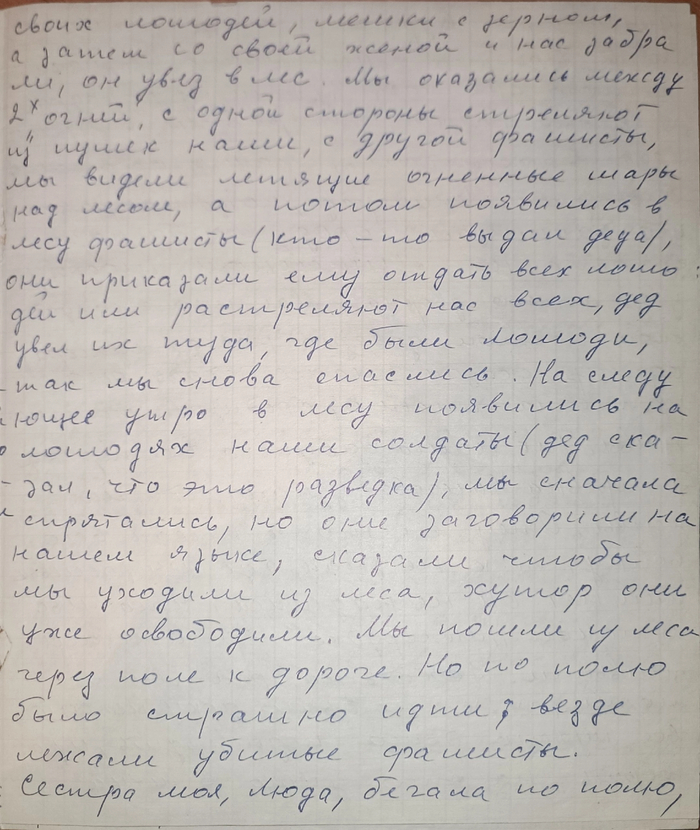 своих лошодей, мешки с зерном,
а затем со своей женой и нас забра
ли, он увёз в лес. Мы оказались между
2х огней, с одной стороны стреляют
из пушек наши, с другой фашисты,
мы видели летящие огненные шары
над лесом, а потом появились в
лесу фашисты (кто-то выдал деда),
они приказали ему отдать всех лошо
дей или растреляют нас всех, дед
увел их туда, где были лошоди,
так мы снова спаслись. На следу
ющее утро в лесу появились на
лошодях наши солдаты (дед ска-
зал, что это разведка), мы сначала
спрятались, но они заговорили на
нашем языке, сказали чтобы
мы уходили из леса, хутор они
уже освободили. Мы пошли из леса
через поле к дороге. Но по полю
было страшно идти, везде
лежали убитые фашисты.
Сестра моя, Люда, бегала по полю,